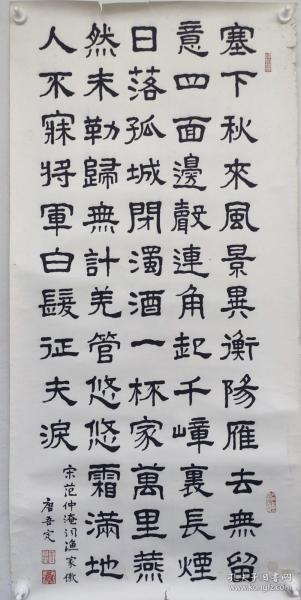 塞下秋來風景異衡陽雁去無留
意四面邊聲連角起千嶂裏長煙
日落孤城閉濁酒一杯家萬里燕
然未勒歸無計羌管悠悠霜滿地
人不寐將軍白髮征夫淚
宋范仲淹词渔家傲
孔夫子旧书网